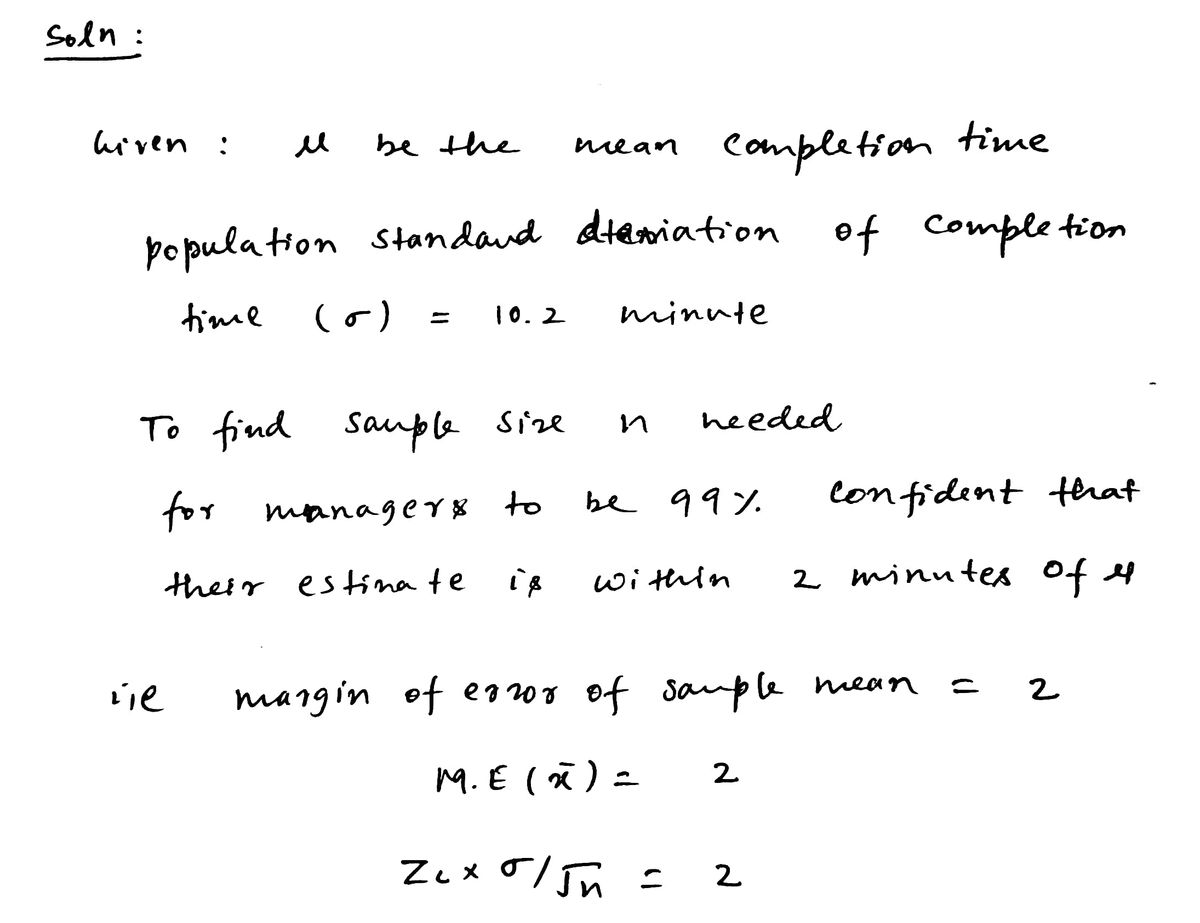 Soln :
Given : μ be the mean completion time
population standard deviation of completion
time (σ) = 10.2 minute
To find sample size n needed
for managers to be 99% confident that
their estimate is within 2 minutes of μ
i.e margin of error of sample mean = 2
M.E (x̄) = 2
Zc × σ/√n = 2